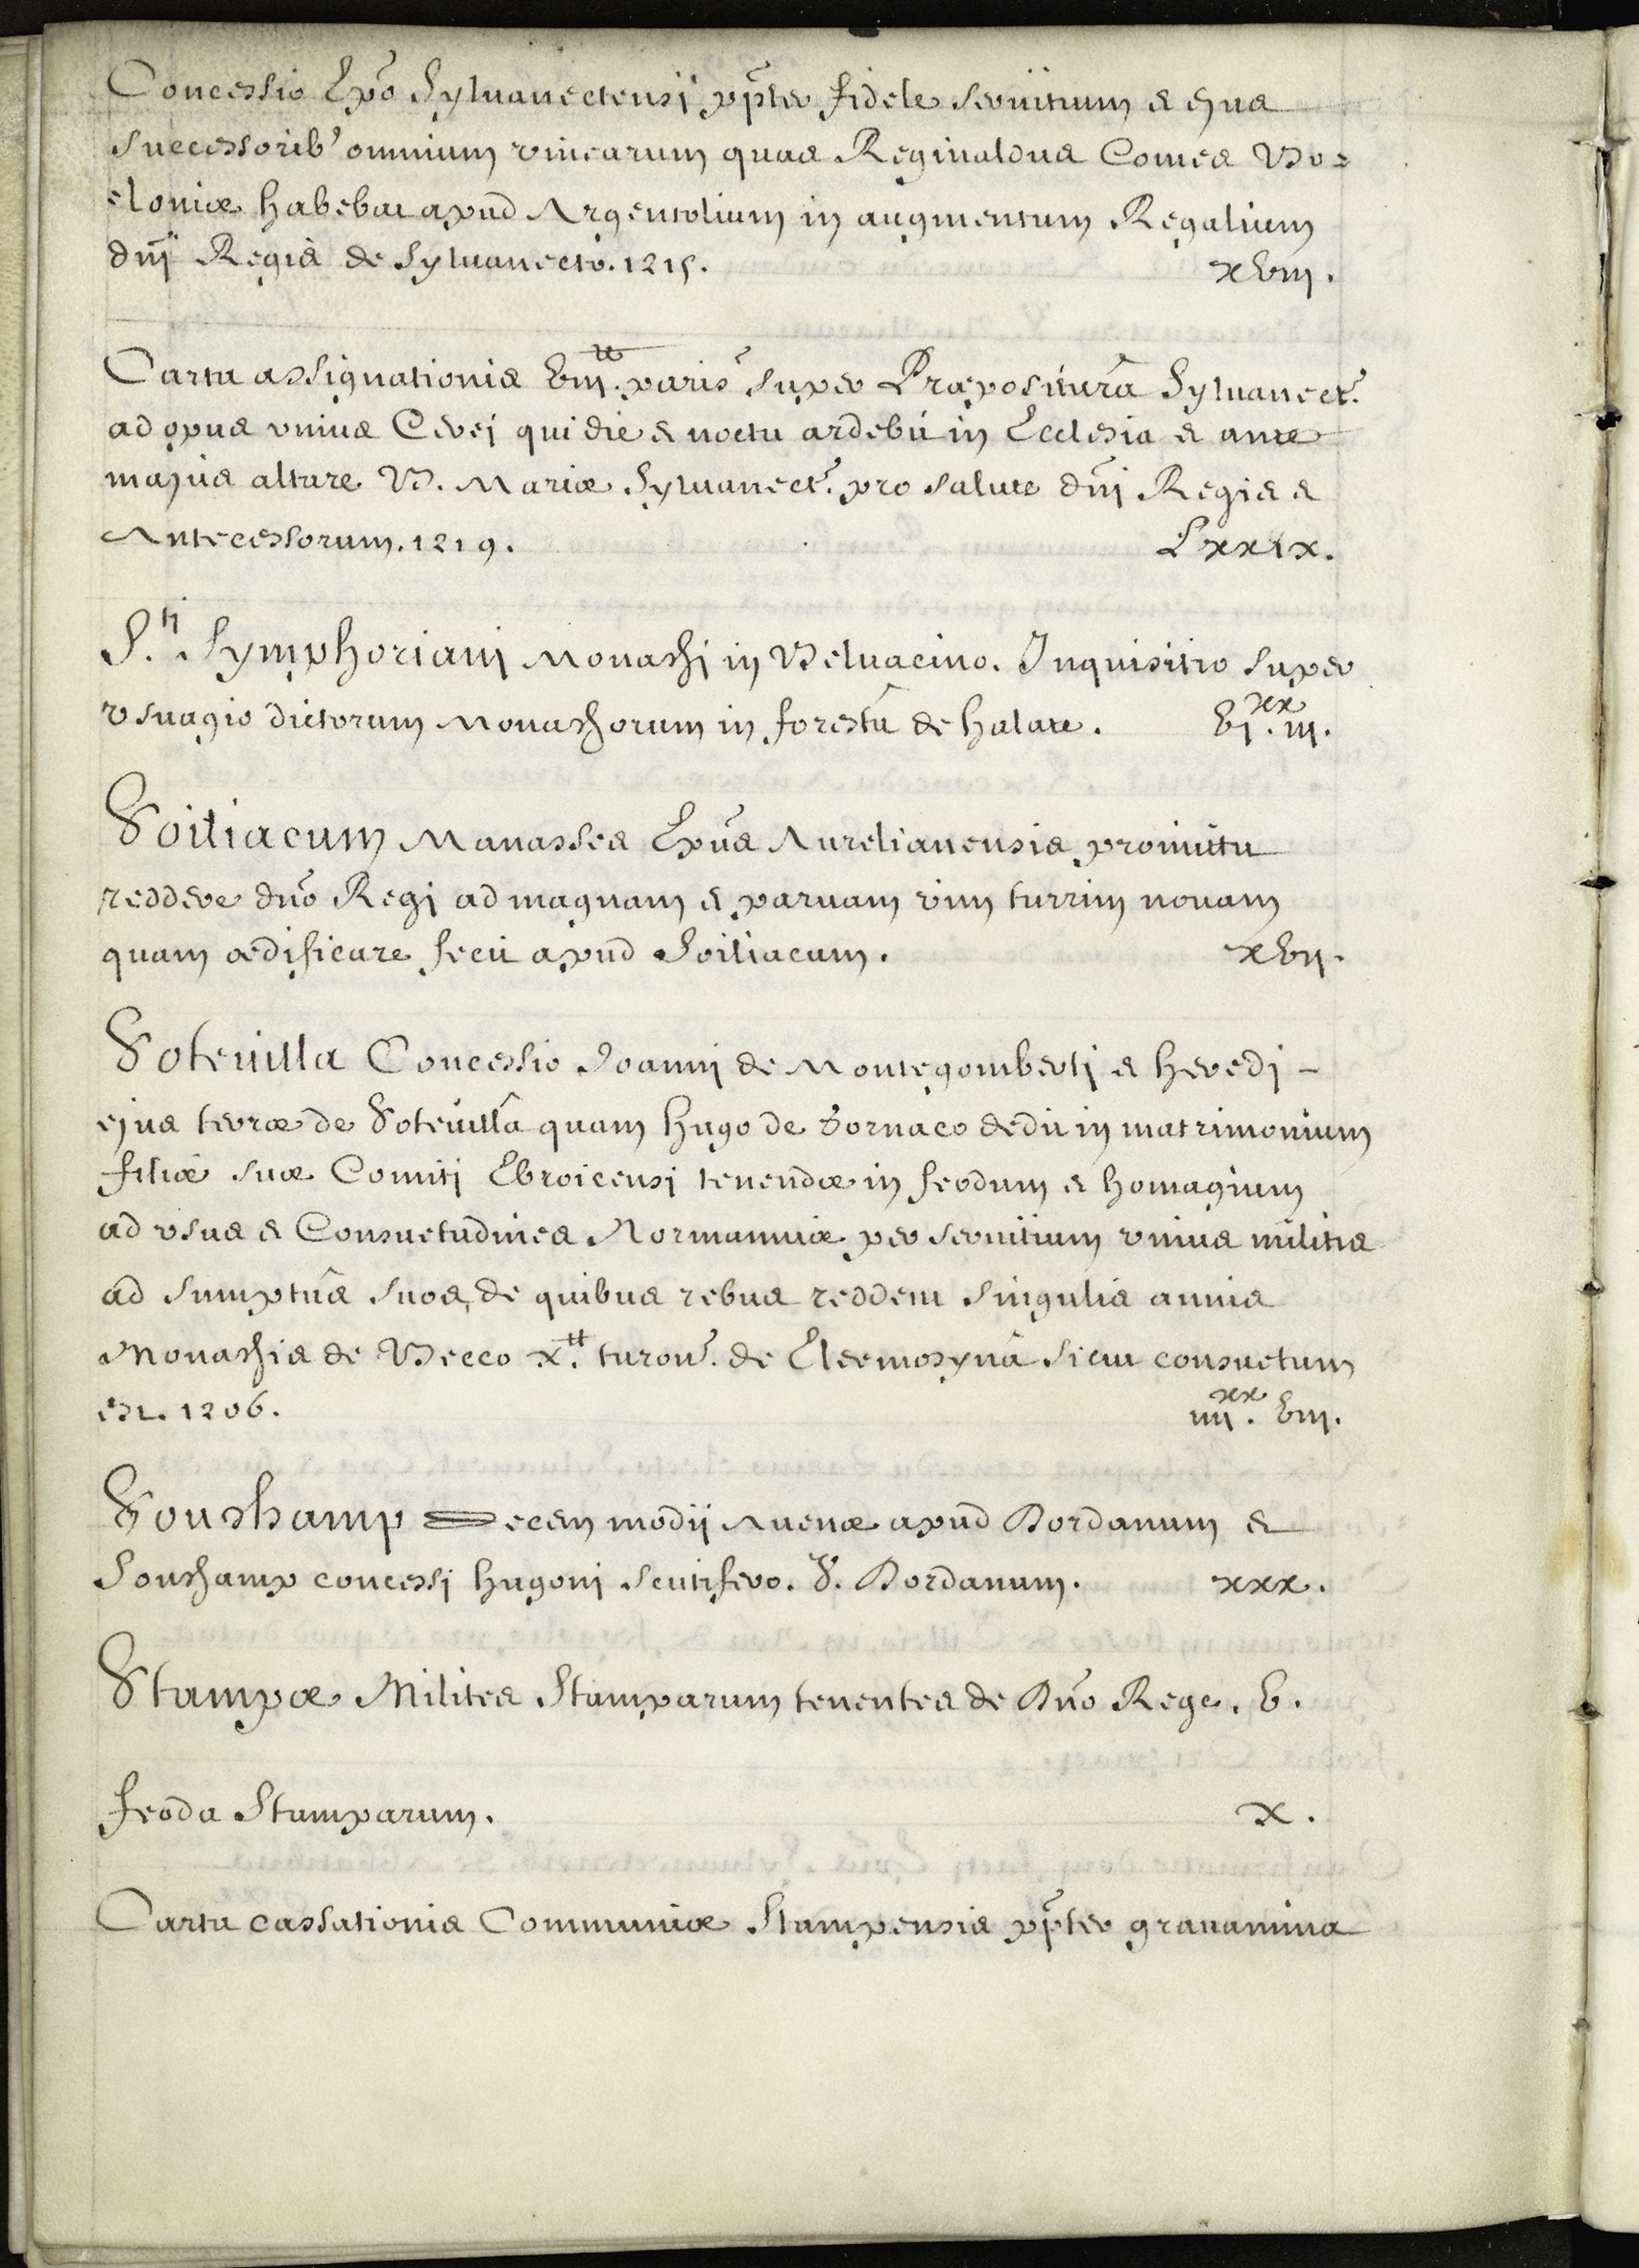 Concessio Ep̃o Sylvanectensi pp̃ter fidele servitium & ejus
successorib' omnium vinearum quas Reginaldus Comes Bo=
eloniæ habebat apud Argentolium in augmentum Regalium
dñi Regis de Sylvanecto. 1215. xviii.
Carta assignationis viii.tt paris̃ super Præpositurã Sylvanect.
ad opus unius Cerei qui die & noctu ardebit in Ecclesia & ante
majus altare B. Mariæ Sylvanect. pro salute dñi Regis &
Antecessorum. 1219. Lxxix.
S.ti Symphoriani Monachi in Belvacino. Inquisitio super
usuagio dictorum Monachorum in forestâ de halate. vi.xx iii.
Soiliacum Manasses Ep̃us Aurelianensis promittit
reddere dño Regi ad magnam & parvam vim turrim novam
quam ædificare fecit apud Soiliacum. xvii.
Sotevilla Concessio Joanni de Montegomberti & heredi -
ejus terræ de Sotevillâ quam hugo de Tornaco dedit in matrimonium
filiæ suæ Comiti Ebroicensi tenendæ in feodum & homagium
ad usus & Consuetudines Normanniæ per servitium unius militis
ad sumptus suos, de quibus rebus reddent singulis annis
Monachis de Becco x.tt turon̄. de Eleemosynâ sicut consuetum
est. 1206. iiii.xx viii.
Souchamp Decem modii Avenæ apud Dordanum &
Souchamp concessi hugoni scutifero. V. Dordanum. xxx.
Stampæ Milites Stamparum tenentes de Dño Rege. v.
feoda Stamparum. x.
Carta cassationis Communiæ Stampensis pp̃ter gravamina